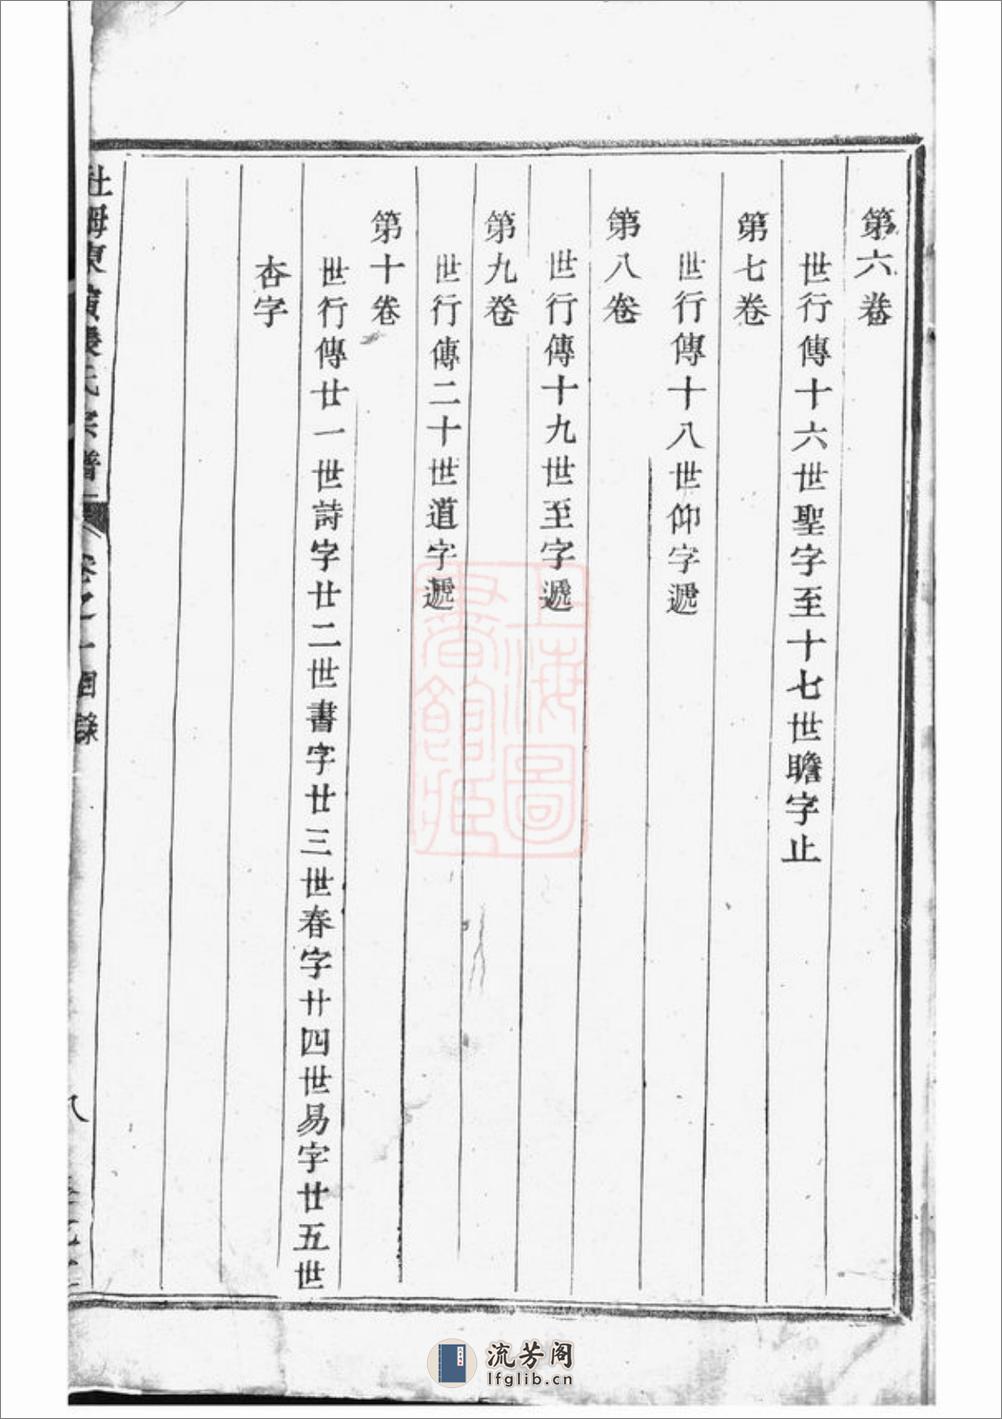 第六卷
世行傳十六世聖字至十七世瞻字止
第七卷
世行傳十八世仰字遞
第八卷
世行傳十九世至字遞
第九卷
世行傳二十世道字遞
第十卷
世行傳廿一世詩字廿二世書字廿三世春字廿四世易字廿五世
杏字
氏宗譜
卷之一目錄
八
上海圖書館藏
流芳阁
lfglib.cn